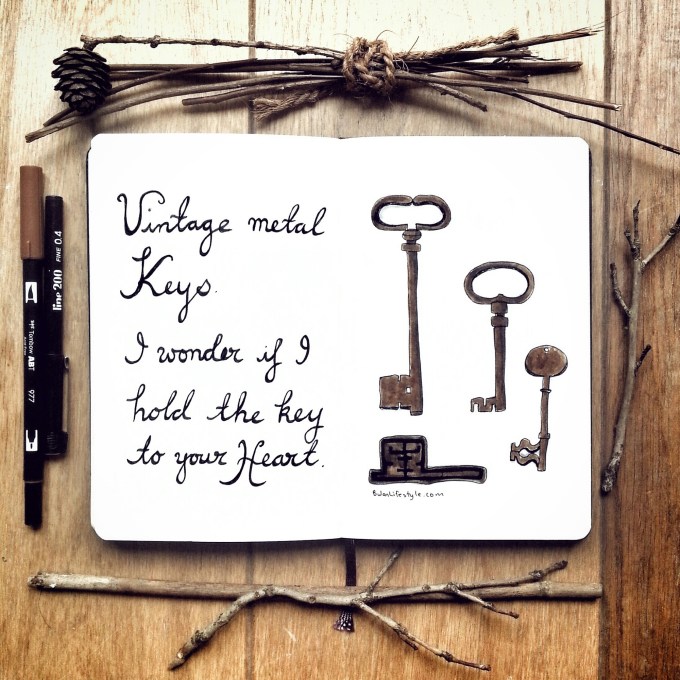 Vintage metal
Keys.
I wonder if I
hold the key
to your Heart.
BulanLifestyle.com
line 200 FINE 0.4
Tombow ABT
977